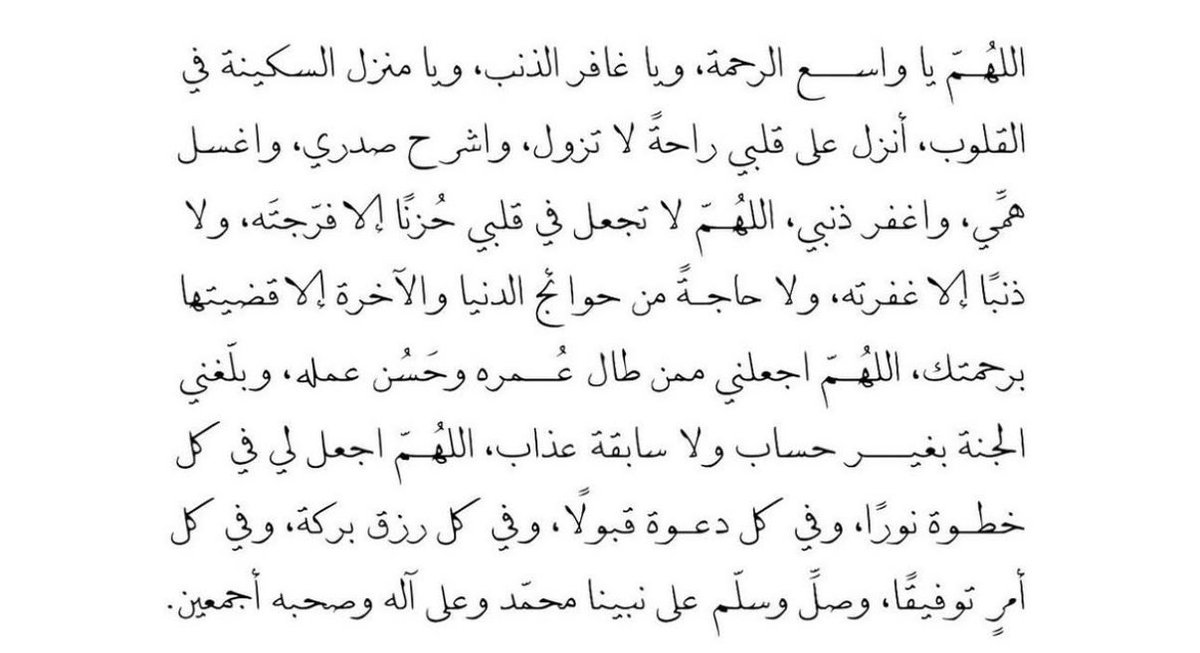 اللهُمّ يا واسع الرحمة، ويا غافر الذنب، ويا منزل السكينة في
القلوب، أنزل على قلبي راحةً لا تزول، واشرح صدري، واغسل
همِّي، واغفر ذنبي، اللهُمّ لا تجعل في قلبي حُزنًا إلا فرّجتَه، ولا
ذنبًا إلا غفرته، ولا حاجةً من حوائج الدنيا والآخرة إلا قضيتها
برحمتك، اللهُمّ اجعلني ممن طال عُمره وحَسُن عمله، وبلّغني
الجنة بغير حساب ولا سابقة عذاب، اللهُمّ اجعل لي في كل
خطوة نورًا، وفي كل دعوة قبولًا، وفي كل رزق بركة، وفي كل
أمرٍ توفيقًا، وصلِّ وسلّم على نبينا محمّد وعلى آله وصحبه أجمعين.